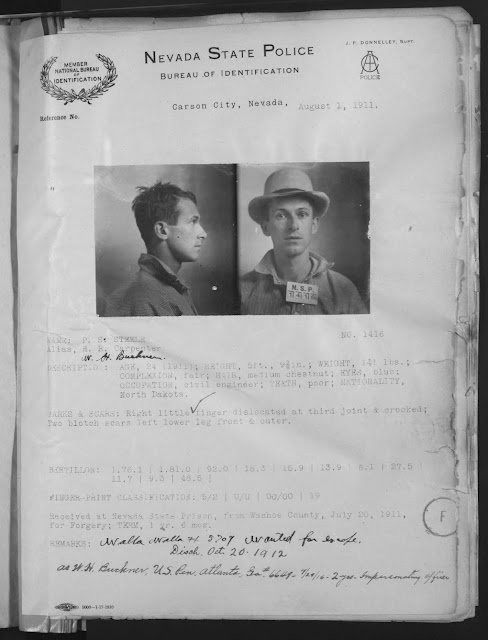 MEMBER
NATIONAL BUREAU
OF
IDENTIFICATION
NEVADA STATE POLICE
BUREAU OF IDENTIFICATION
J. P. DONNELLEY, SUPT.
POLICE
Carson City, Nevada, August 1, 1911.
Reference No.
N.S.P.
NAME: P. S. STEELE NO. 1416
Alias, H. R. Carpenter
W. H. Buckner.
DESCRIPTION: AGE, 24 (1911); HEIGHT, 5ft., WEIGHT, lbs.;
COMPLEXION, fair; HAIR, medium chestnut; EYES, blue;
OCCUPATION, civil engineer; TEETH, poor; NATIONALITY,
North Dakota.
MARKS & SCARS: Right little finger dislocated at third joint & crooked;
Two blotch scars left lower leg front & outer.
BERTILLON: 1.76.1 | 1.81.0 | 92.0 | 18.3 | 15.9 | 13.9 | 6.1 | 27.5 |
11.7 | 9.3 | 46.5 |
FINGER-PRINT CLASSIFICATION: 5/2 | U/U | 00/00 | 19
Received at Nevada State Prison, from Washoe County, July 20, 1911,
for Forgery; TERM, 1 yr. 6 mos.
F
REMARKS: Walla Walla # 5707 Wanted for escape.
Disch. Oct. 20-1912
as W. H. Buckner, U.S. Pen, Atlanta, Ga. # 6649- 2 yrs. Impersonating officer